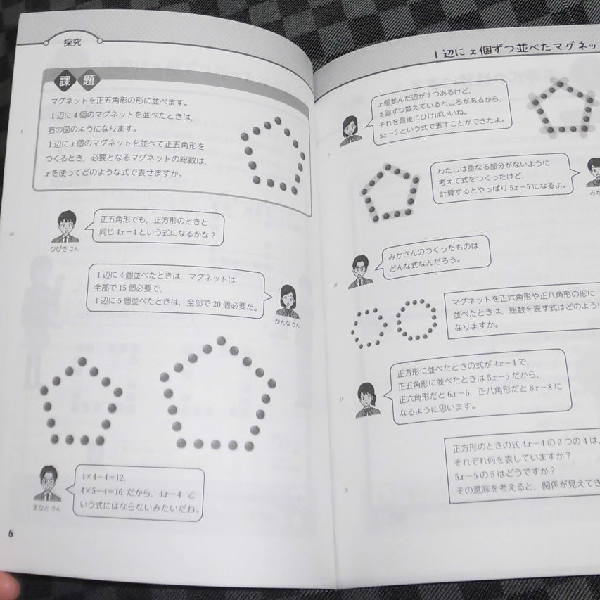 探究
課題
マグネットを正五角形の形に並べます。
1辺に4個のマグネットを並べたときは、
右の図のようになります。
1辺にx個のマグネットを並べて正五角形を
つくるとき、必要となるマグネットの総数は、
xを使ってどのような式で表せますか。
正五角形でも、正方形のときと
同じ4x−4という式になるかな?
ひびきさん
1辺に4個並べたときは、マグネットは
全部で15個必要で、
1辺に5個並べたときは、全部で20個必要だ。
かんなさん
4×4−4=12、
4×5−4=16だから、4x−4と
いう式にはならないみたいだね。
まなとさん
6
1辺にx個ずつ並べたマグネッ
x個並んだ辺が5つあるけど、
それを最後にひけばいいね。
5x−5という式で表すことができたよ。
わたしは重なる部分がないように
考えて式をつくったけど、
計算するとやっぱり5x−5になるよ。
みかさんのつくったものは
どんな式なんだろう。
マグネットを正六角形や正八角形の形に
並べたときは、総数を表す式はどのよう
なりますか。
正方形に並べたときの式が4x−4で、
正五角形に並べたときは5x−5だから、
正六角形だと6x−6、正八角形だと8x−8に
なるように思います。
正方形のときの式4x−4の2つの4は、
それぞれ何を表していますか?
5x−5の5はどうですか?
その意味を考えると、関係が見えてき